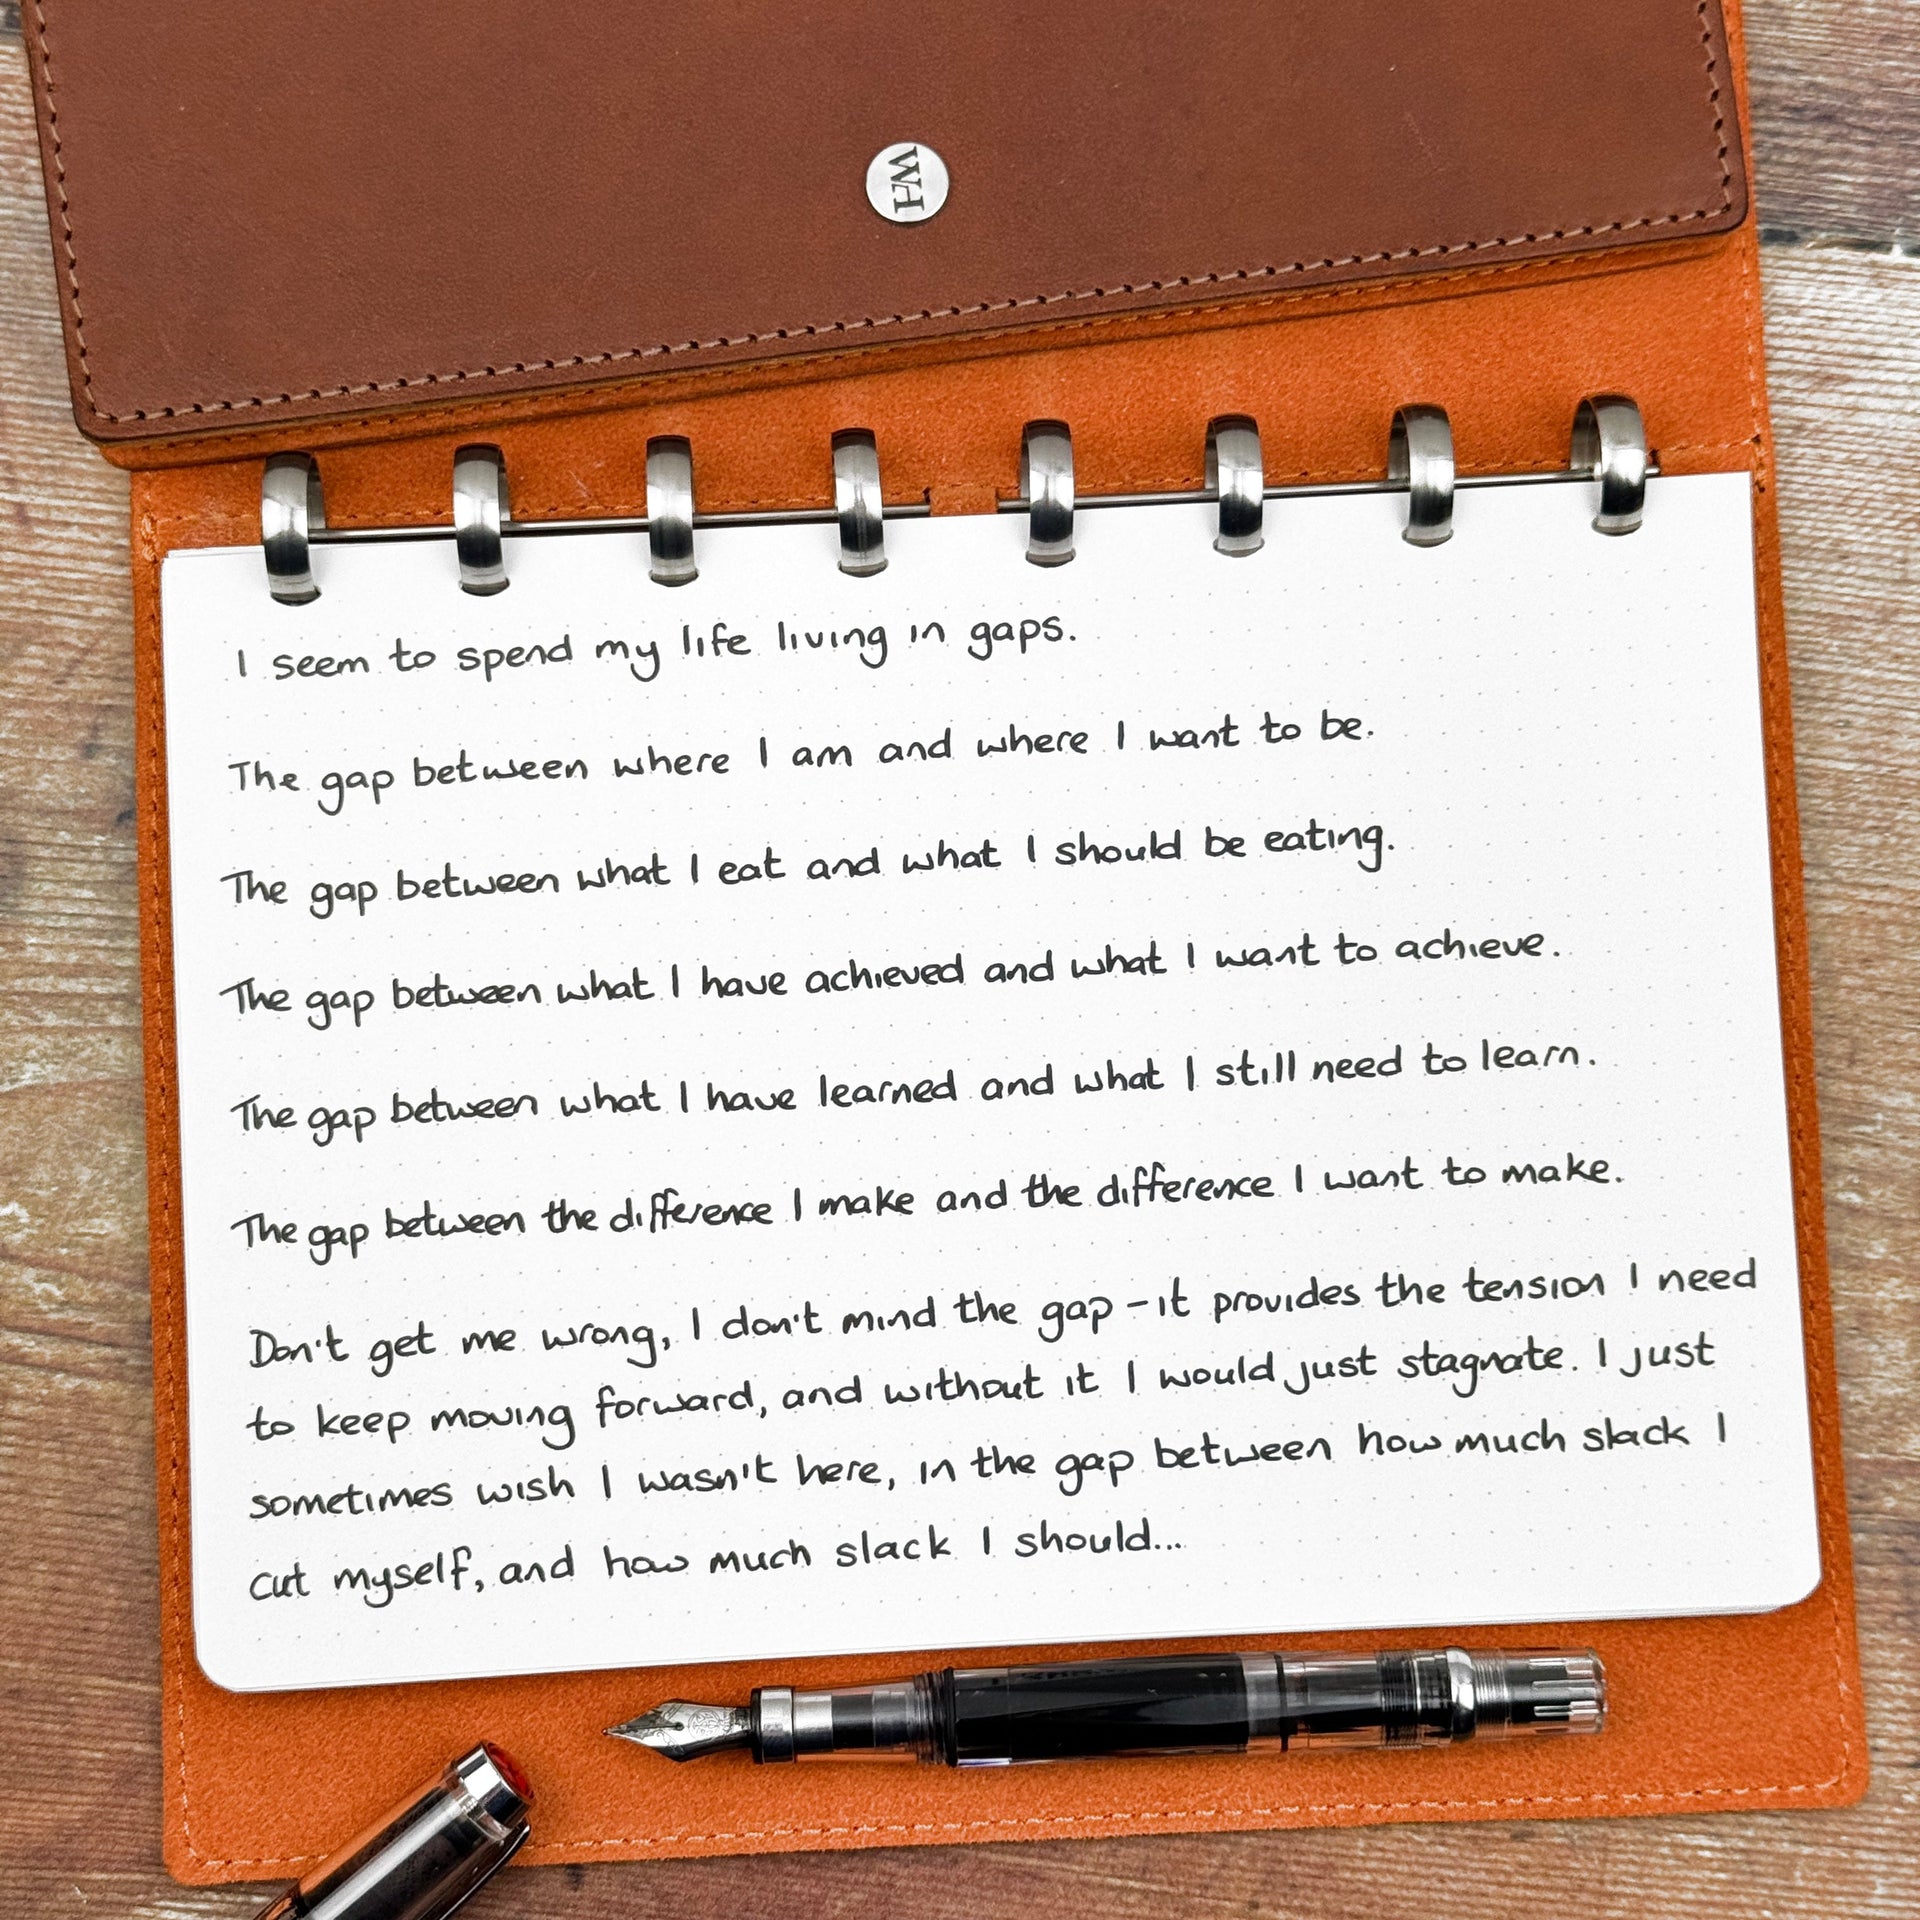 WH
I seem to spend my life living in gaps.
The gap between where I am and where I want to be.
The gap between what I eat and what I should be eating.
The gap between what I have achieved and what I want to achieve.
The gap between what I have learned and what I still need to learn.
The gap between the difference I make and the difference I want to make.
Don't get me wrong, I don't mind the gap - it provides the tension I need
to keep moving forward, and without it I would just stagnate. I just
sometimes wish I wasn't here, in the gap between how much slack I
cut myself, and how much slack I should...